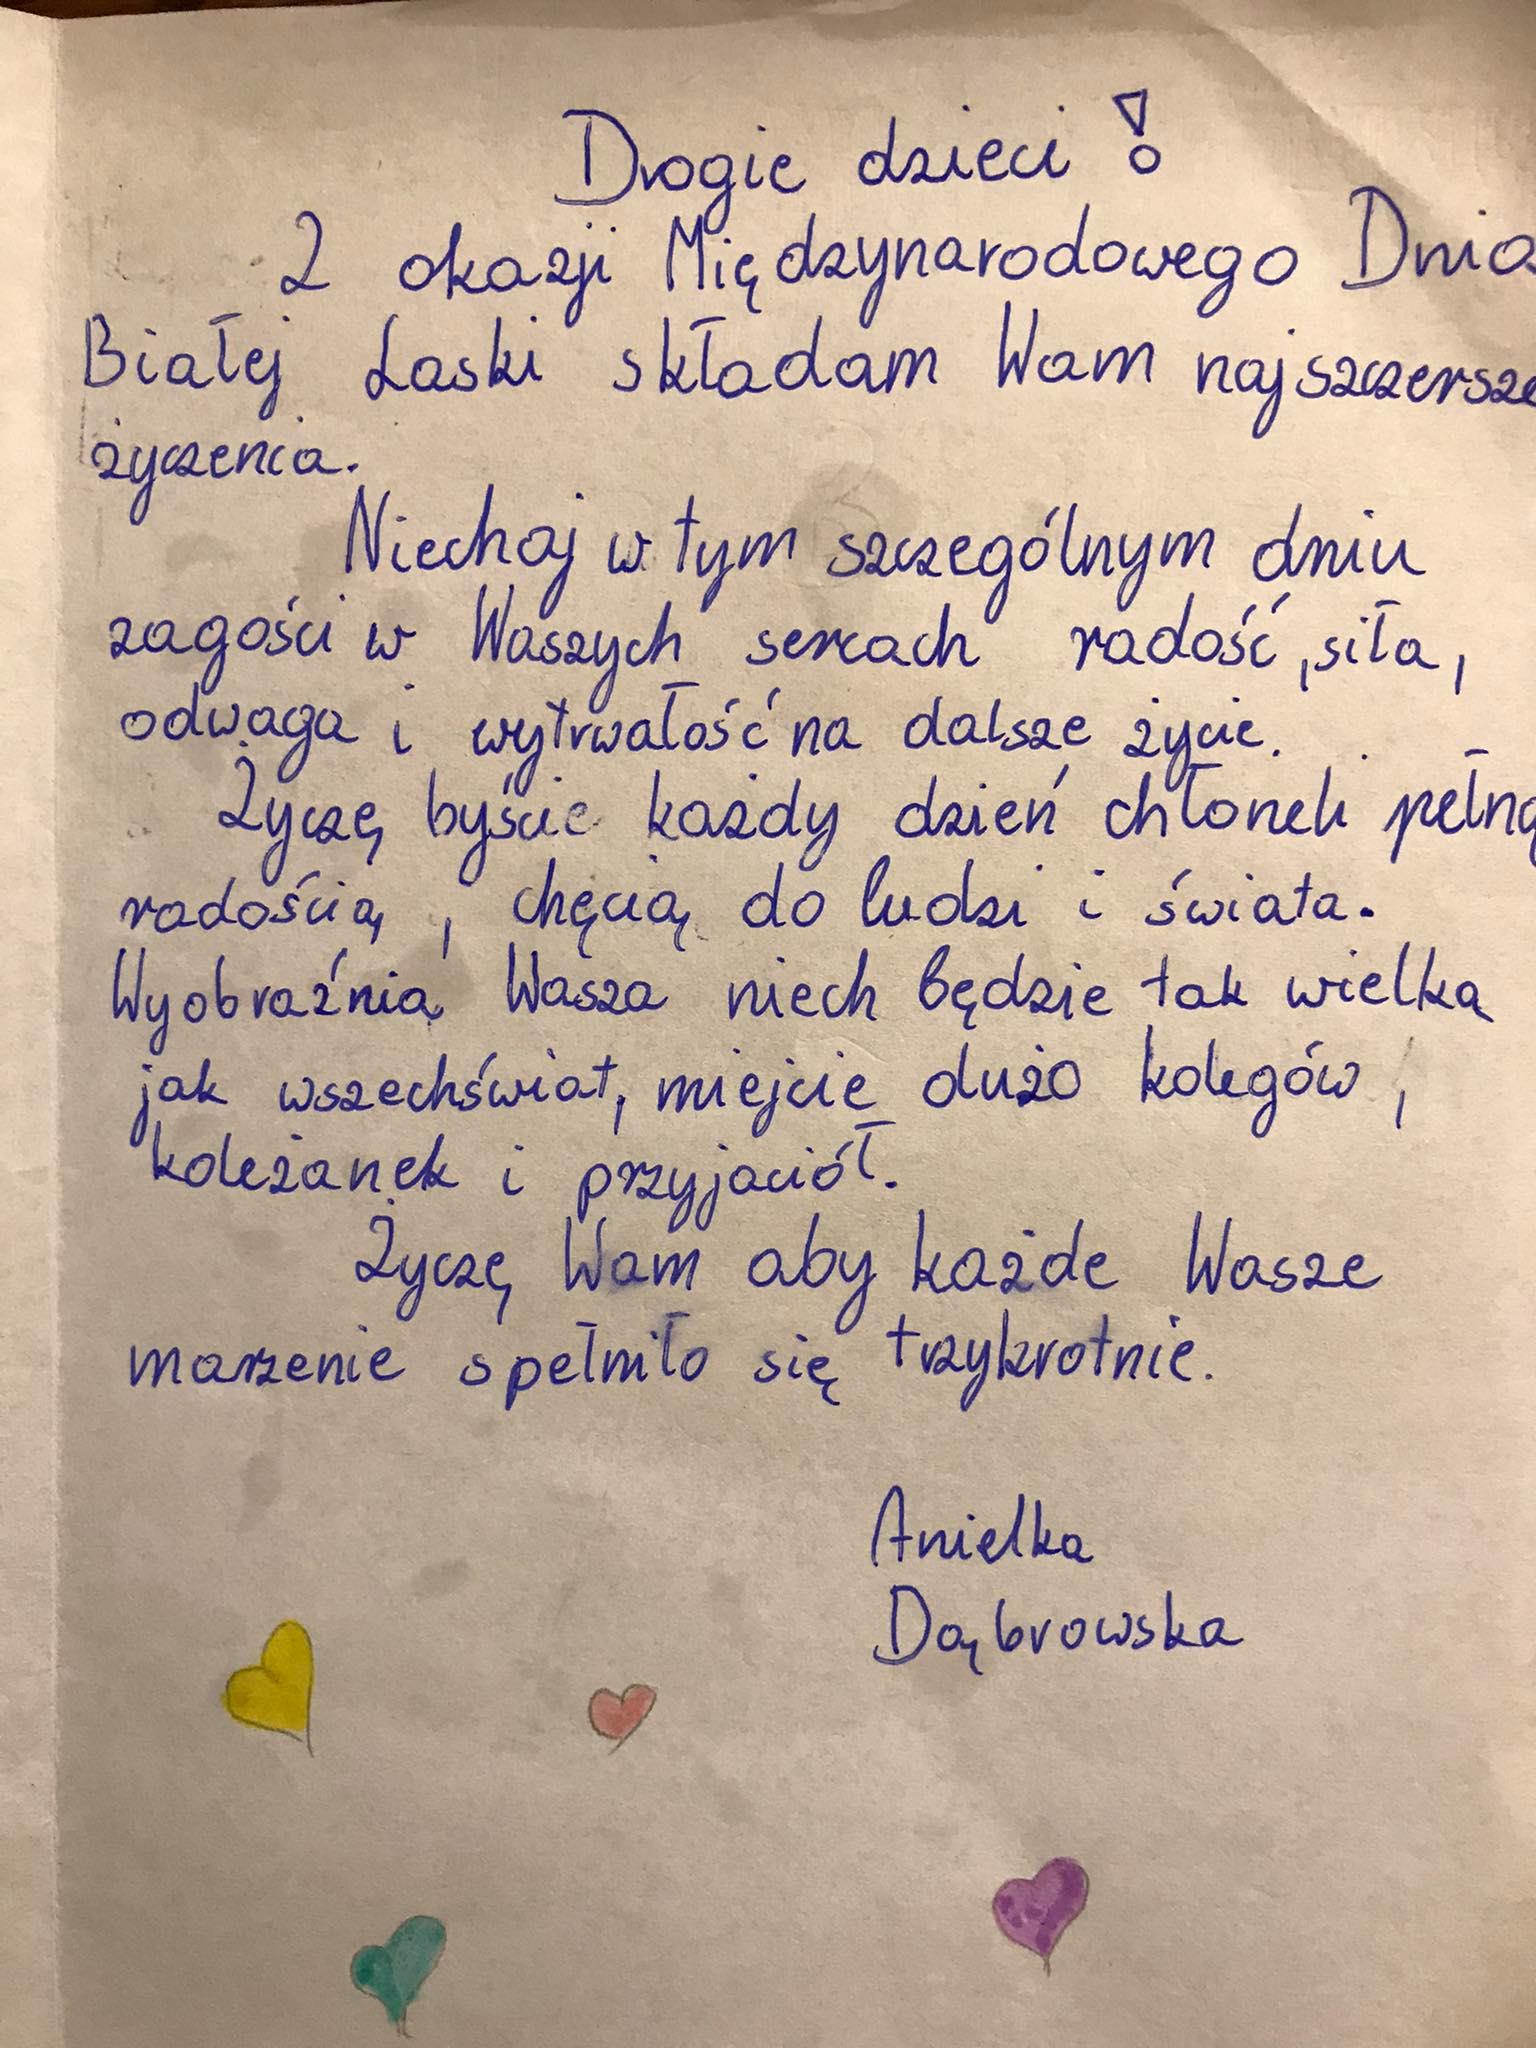 Drogie dzieci!
Z okazji Międzynarodowego Dnia
Białej Laski składam Wam najszczersze
życzenia.
Niechaj w tym szczególnym dniu
zagości w Waszych sercach radość, siła,
odwaga i wytrwałość na dalsze życie.
Życzę byście każdy dzień chłoneli pełną
radością, chęcią do ludzi i świata.
Wyobraźnia Wasza niech będzie tak wielka
jak wszechświat, miejcie dużo kolegów,
koleżanek i przyjaciół.
Życzę Wam aby każde Wasze
marzenie spełniło się trzykrotnie.
Anielka
Dąbrowska